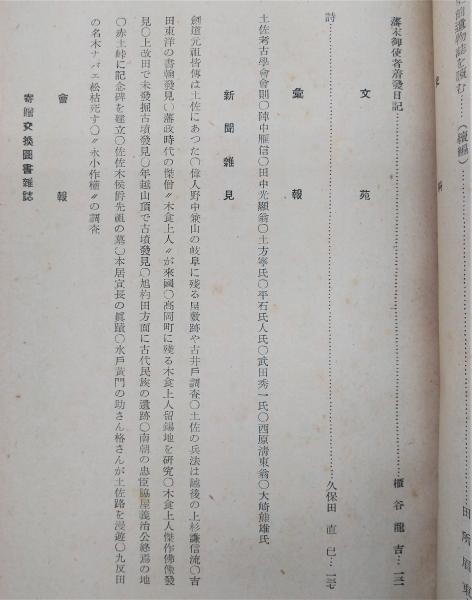 前遺物誌を讀む……(續編)
田所眉東
藩末御使者着發日記……櫃谷龍吉…一三一
文苑
詩……久保田直巳…一三七
彙報
土佐考古學會會則〇陣中雁信〇田中光顯翁〇土方寧氏〇平石氏人氏〇武田秀一氏〇西原淸東翁〇大崎熊雄氏
新聞雜見
劍道元祖皆傳は土佐にあつた〇偉人野中兼山の岐阜に殘る屋敷跡や古井戶調查〇土佐の兵法は越後の上杉謙信流〇吉
田東洋の書翰發見〇藩政時代の傑僧〃木食上人〃が來國〇高岡町に殘る木食上人留錫地を研究〇木食上人傑作佛像發
見〇上改田で未發掘古墳發見〇年越山頂で古墳發見〇旭杓田方面に古代民族の遺跡〇南朝の忠臣脇屋義治公終焉の地
〇赤土峠に記念碑を建立〇佐佐木侯爵先祖の墓〇本居宣長の眞蹟〇水戶黃門の助さん格さんが土佐路を漫遊〇九反田
の名木ナバエ松枯死す〇〃永小作權〃の調查
會報
寄贈交換圖書雜誌